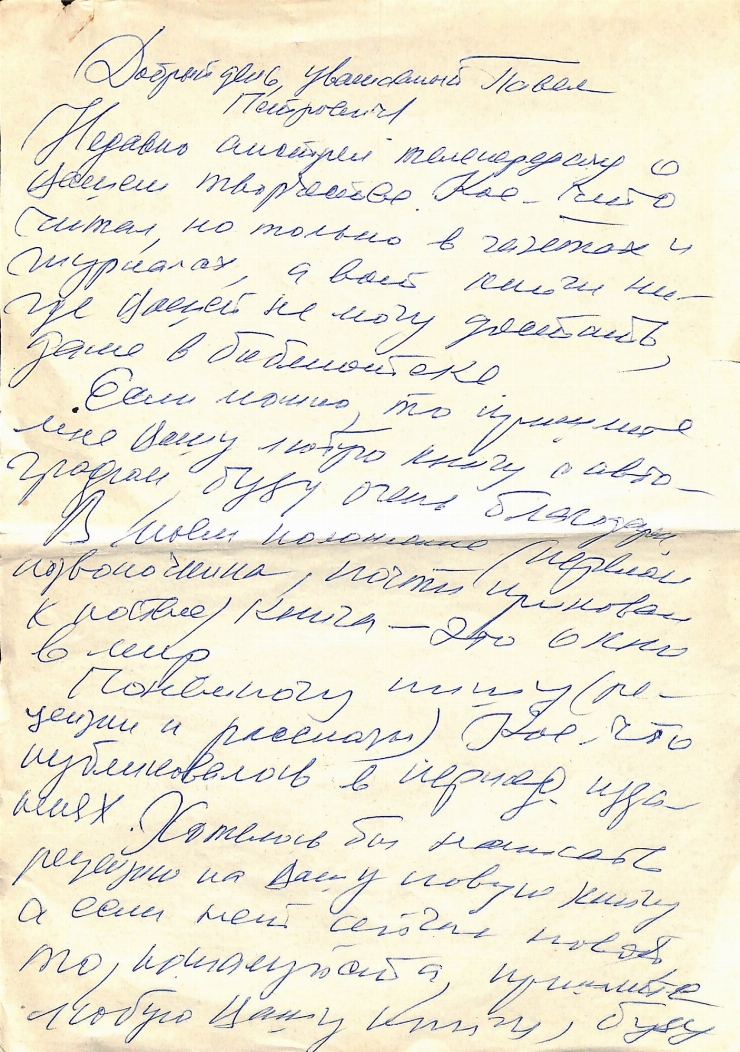 Добрый день, уважаемый Павел
Петрович!
Недавно смотрел телепередачу о
Вашем творчестве. Кое-что
читал, но только в газетах и
журналах, а вот книги ни-
где Вашей не могу достать,
даже в библиотеке
Если можно, то пришлите
мне Вашу любую книгу с авто-
графом, буду очень благодарен.
В моем положении (перелом
позвоночника, почти прикован
к постели) книга – это окно
в мир
Понемногу пишу (ре-
цензии и рассказы) Кое-что
публиковалось в период. изда-
ниях. Хотелось бы написать
рецензию на Вашу новую книгу
а если нет сейчас новой
то, пожалуйста, пришлите
любую Вашу книгу, буду